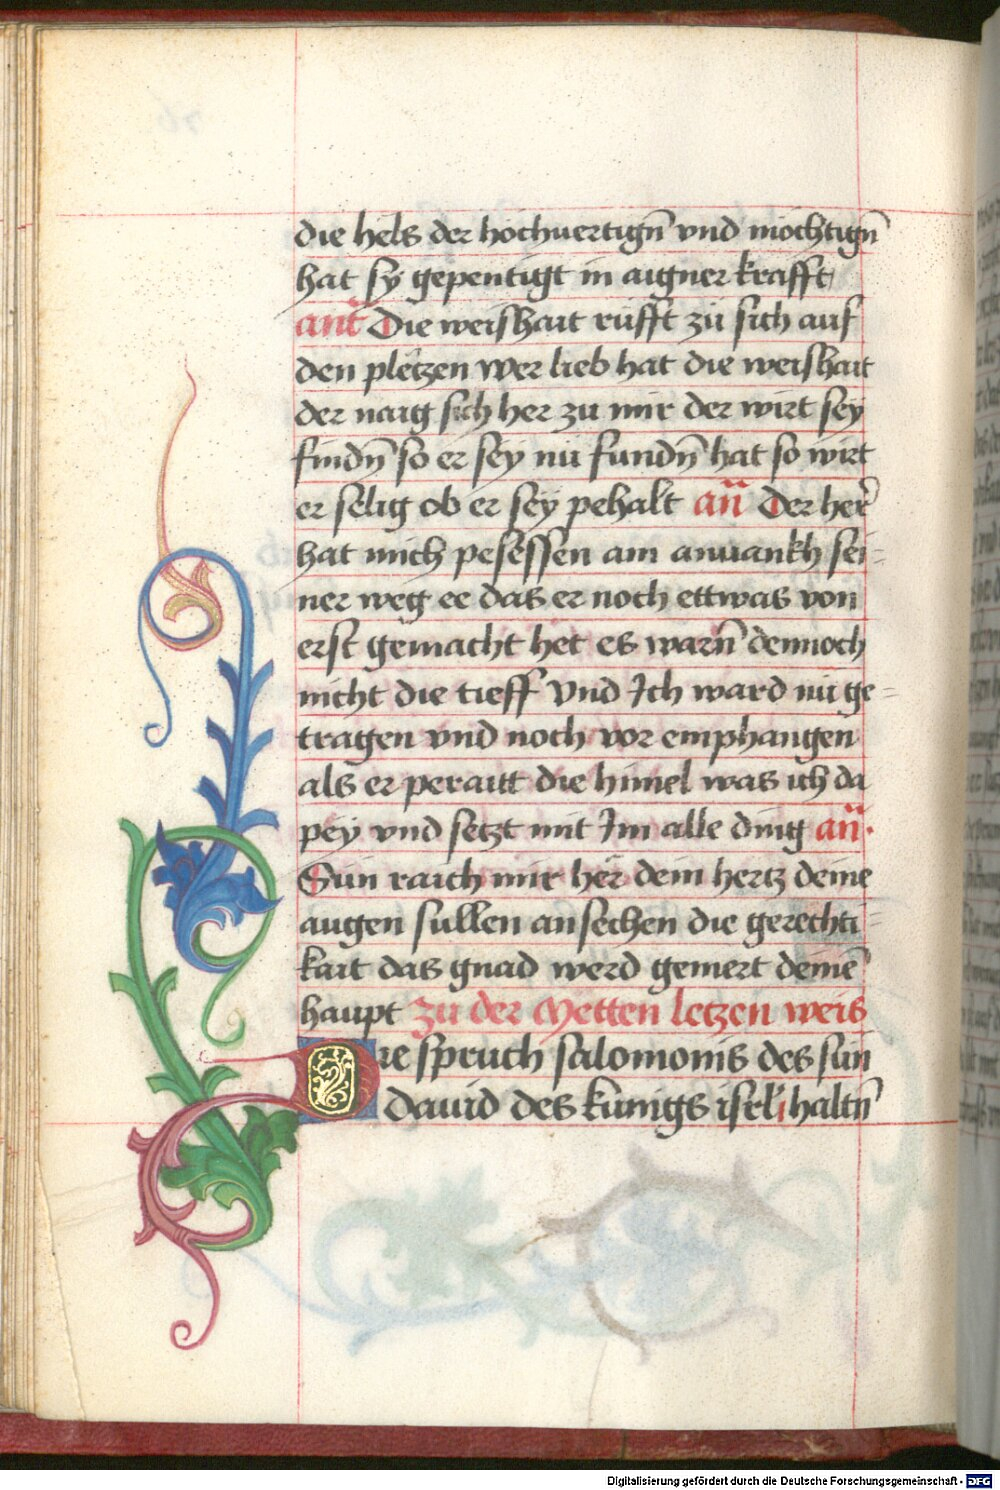 die hels der hochuertign̄ vnd mochtign̄
hat sy gepentigt in aigner krafft
ant̄ Die weishait rüfft zü sich auf
den pletzen wer lieb hat die weishait
der naig sich her zu mir der wirt sey
findn̄ so er sey nü fundn̄ hat so wirt
er selig ob er sey pehalt an̄ Der her̄
hat mich pesessen am anuankh sei=
ner weg ee das er noch ettwas von
erst gemacht het es warn̄ dennoch
nicht die tieff Vnd Ich ward nü ge=
tragen vnd noch vor emphangen
als er peraitt die himel was ich da
pey vnd setzt mit Im alle ding an̄.
Sün raich mir her dein hertz deine
augen süllen ansechen die gerechti=
kait das gnad werd gemert deinē
haupt zu der Metten letzen weis
Dre spruch salomonis des sün
dauid des künigs isrl̄ haltn̄
Digitalisierung gefördert durch die Deutsche Forschungsgemeinschaft - DFG